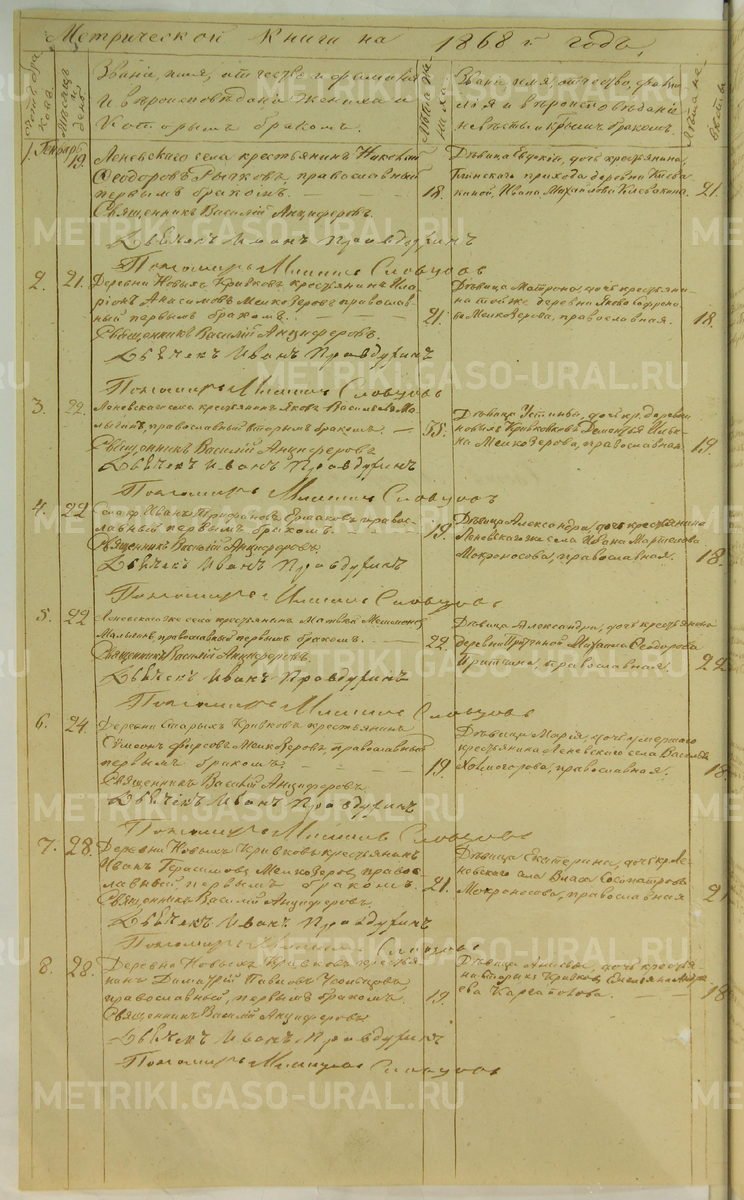 Метрической Книги на 1868 й годъ.
Счетъ бра
ковъ.
Месяцъ и
день.
Званіе, имя, отчество и фамилія
и вѣроисповѣданіе жениха и
которымъ бракомъ.
Лѣта же
ниха.
Званіе, имя, отчество, фами
лія и вѣроисповѣданіе
невѣсты и крымъ бракомъ.
Лѣта не
вѣсты
1. Генварь 19.
Леневскаго села крестьянинъ Николай
Ѳеодоровъ Лычковъ, православный
первымъ бракомъ. 18.
Священникъ Василій Анциферовъ.
Дьячекъ Иванъ Правдухинъ
Пономарь Словцовъ
Дѣвица Евдокія, дочь крестьянина
прихода деревни
Ивана Михайлова 21.
2. 21. Деревни Новыхъ Кривковъ крестьянинъ Ила
ріонъ Анисимовъ Мелкозеровъ православ
ный первымъ бракомъ. 21.
Священникъ Василій Анциферовъ.
Дьячекъ Иванъ Правдухинъ
Пономарь Словцовъ
Дѣвица Матрона, дочь крестьяни
на той же деревни Якова Софроно
ва Мелкозерова, православная. 18.
3. 22. Леневскаго села крестьянинъ Яковъ Васильевъ Ма
лыгинъ, православный вторымъ бракомъ. 55.
Священникъ Василій Анциферовъ
Дьячекъ Иванъ Правдухинъ
Пономарь Словцовъ
Дѣвица Устинья, дочь кр. деревни
новыхъ Кривковъ Дементья Ильи
на Мелкозерова, православная 19.
4. 22 Иванъ Трифоновъ Ермаковъ право
славный первымъ бракомъ. 19.
Священникъ Василій Анциферовъ.
Дьячекъ Иванъ Правдухинъ
Пономарь Словцовъ
Дѣвица Александра, дочь крестьянина
Леневскаго же села Ивана
Мокроносова, православная. 18.
5. 22 Леневскаго же села крестьянинъ Матвѣй
православный первымъ бракомъ. 22.
Священникъ Василій Анциферовъ.
Дьячекъ Иванъ Правдухинъ
Пономарь Словцовъ
Дѣвица Александра, дочь крестьянина
деревни Ѳеодорова
православная. 22
6. 24. Деревни Старыхъ Кривковъ крестьянинъ
Сѵмеонъ Фирсовъ Мелкозеровъ, православный
первымъ бракомъ. 19.
Священникъ Василій Анциферовъ
Дьячекъ Иванъ Правдухинъ
Пономарь Словцовъ
Дѣвица Марія, дочь умершаго
крестьянина Леневскаго села Василья
Холмогорова, православная. 18.
7. 28. Деревни Новыхъ Кривковъ крестьянинъ
Иванъ Герасимовъ Мелкозеровъ, право
славный, первымъ бракомъ. 21.
Священникъ Василій Анциферовъ.
Дьячекъ Иванъ Правдухинъ
Пономарь Словцовъ
Дѣвица Екатерина, дочь кр. Ле
невскаго села Власа Сосипатрова
Мокроносова, православная 21
8. 28. Деревни Новыхъ Кривковъ крестья
нинъ Димитрій Павловъ
православный, первымъ бракомъ. 19.
Священникъ Василій Анциферовъ
Дьячекъ Иванъ Правдухинъ
Пономарь Словцовъ
Дѣвица дочь крестья
на старыхъ Кривковъ Андре
ева 18
METRIKI.GASO-URAL.RU